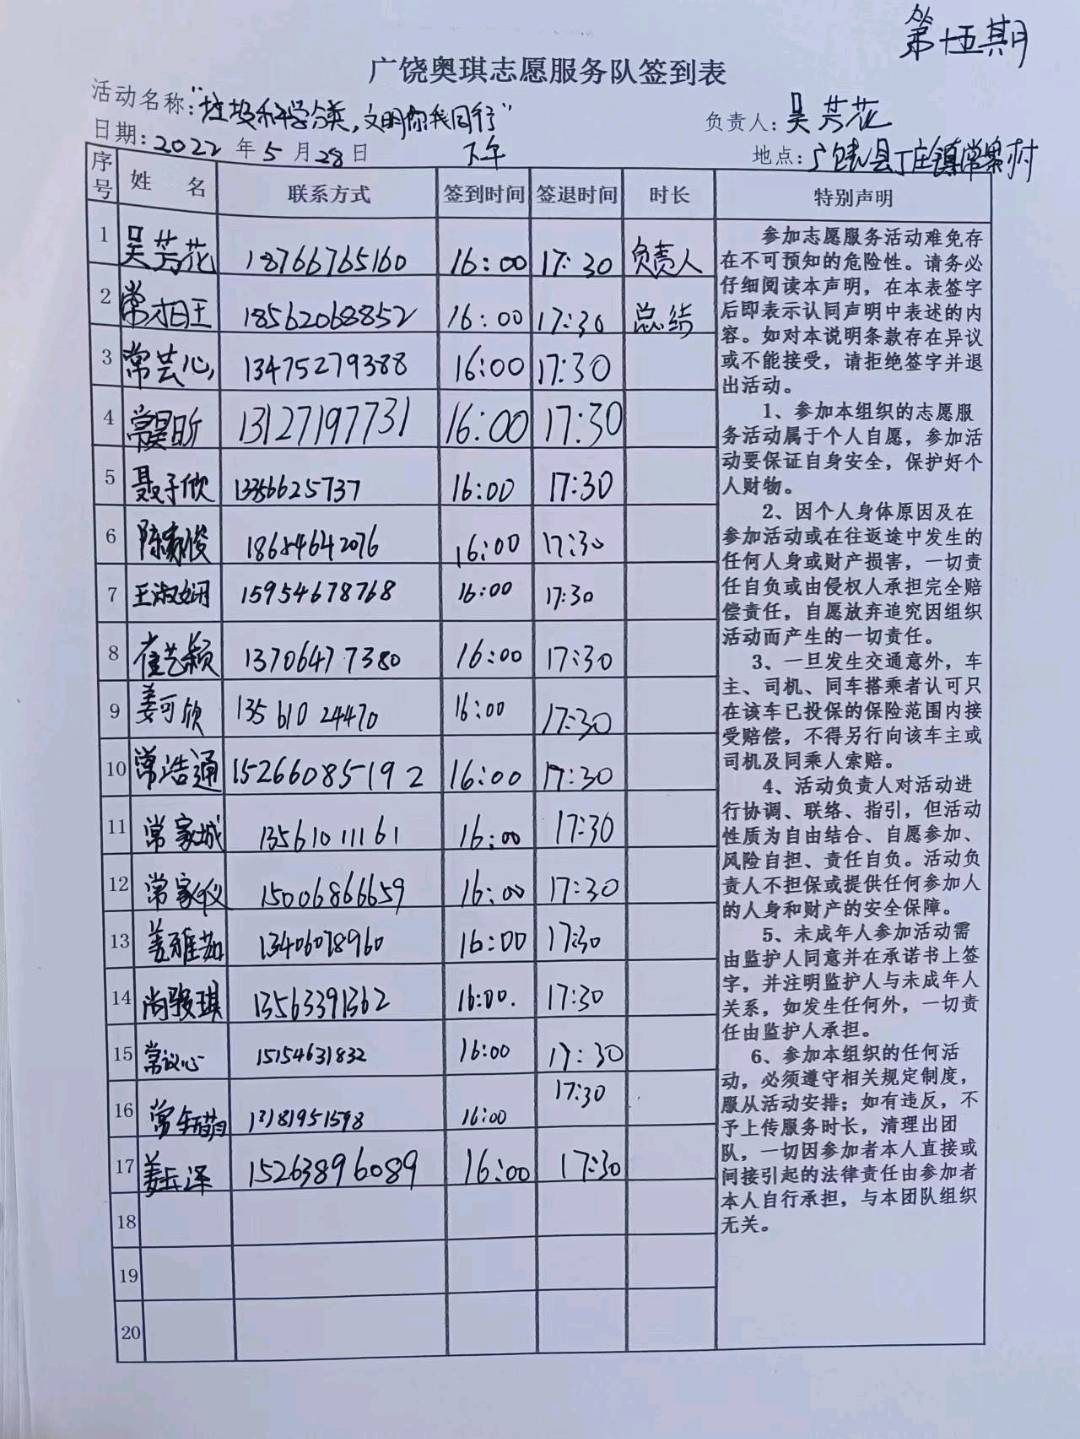 第十五期
广饶奥琪志愿服务队签到表
活动名称:"垃圾科学分类,文明你我同行" 负责人:吴芳花
日期:2022年5月28日 下午 地点:广饶县丁庄镇常寨村
序号 姓名 联系方式 签到时间 签退时间 时长 特别声明
1 吴芳花 18766765160 16:00 17:30 负责人
2 常相王 18562068852 16:00 17:30 总结
3 常芸心 13475279388 16:00 17:30
4 常昊昕 13127197731 16:00 17:30
5 聂子欣 13356625737 16:00 17:30
6 陈家俊 18654642076 16:00 17:30
7 王淑娴 15954678768 16:00 17:30
8 崔艺颖 13706477380 16:00 17:30
9 姜可欣 13561024470 16:00 17:30
10 常浩通 15266085192 16:00 17:30
11 常家城 13561011161 16:00 17:30
12 常家仪 15006866659 16:00 17:30
13 姜雅茹 13406078960 16:00 17:30
14 尚骏琪 13563391362 16:00. 17:30
15 常议心 15154631832 16:00 17:30
16 常 13181951598 16:00 17:30
17 姜兵泽 15263896089 16:00 17:30
18
19
20
参加志愿服务活动难免存
在不可预知的危险性。请务必
仔细阅读本声明,在本表签字
后即表示认同声明中表述的内
容。如对本说明条款存在异议
或不能接受,请拒绝签字并退
出活动。
1、参加本组织的志愿服
务活动属于个人自愿,参加活
动要保证自身安全,保护好个
人财物。
2、因个人身体原因及在
参加活动或在往返途中发生的
任何人身或财产损害,一切责
任自负或由侵权人承担完全赔
偿责任,自愿放弃追究因组织
活动而产生的一切责任。
3、一旦发生交通意外,车
主、司机、同车搭乘者认可只
在该车已投保的保险范围内接
受赔偿,不得另行向该车主或
司机及同乘人索赔。
4、活动负责人对活动进
行协调、联络、指引,但活动
性质为自由结合、自愿参加、
风险自担、责任自负。活动负
责人不担保或提供任何参加人
的人身和财产的安全保障。
5、未成年人参加活动需
由监护人同意并在承诺书上签
字,并注明监护人与未成年人
关系,如发生任何外,一切责
任由监护人承担。
6、参加本组织的任何活
动,必须遵守相关规定制度,
服从活动安排;如有违反,不
予上传服务时长,清理出团
队,一切因参加者本人直接或
间接引起的法律责任由参加者
本人自行承担,与本团队组织
无关。